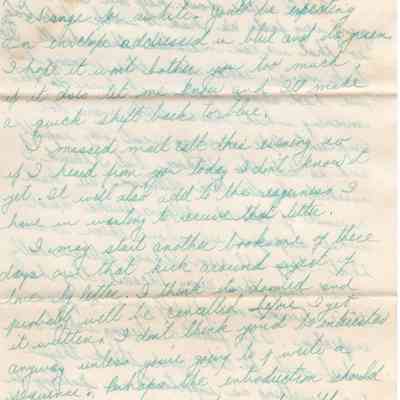 change for awhile. You'll be expecting
an envelope addressed in blue and its green
I hope it won't bother you too much,
if it does let me know and I'll make
a quick shift back to blue.
I missed mail call this evening so
if I heard from you today I don't know it
yet. It will also add to the eagerness I
have in waiting to receive that letter.
I may start another book one of these
days and that kick around
love by letter. I think its doomed and
probably will be cancelled before I get
it written. I don't think you'd be interested
anyway unless you're going to write a
sequence. Perhaps the introduction should